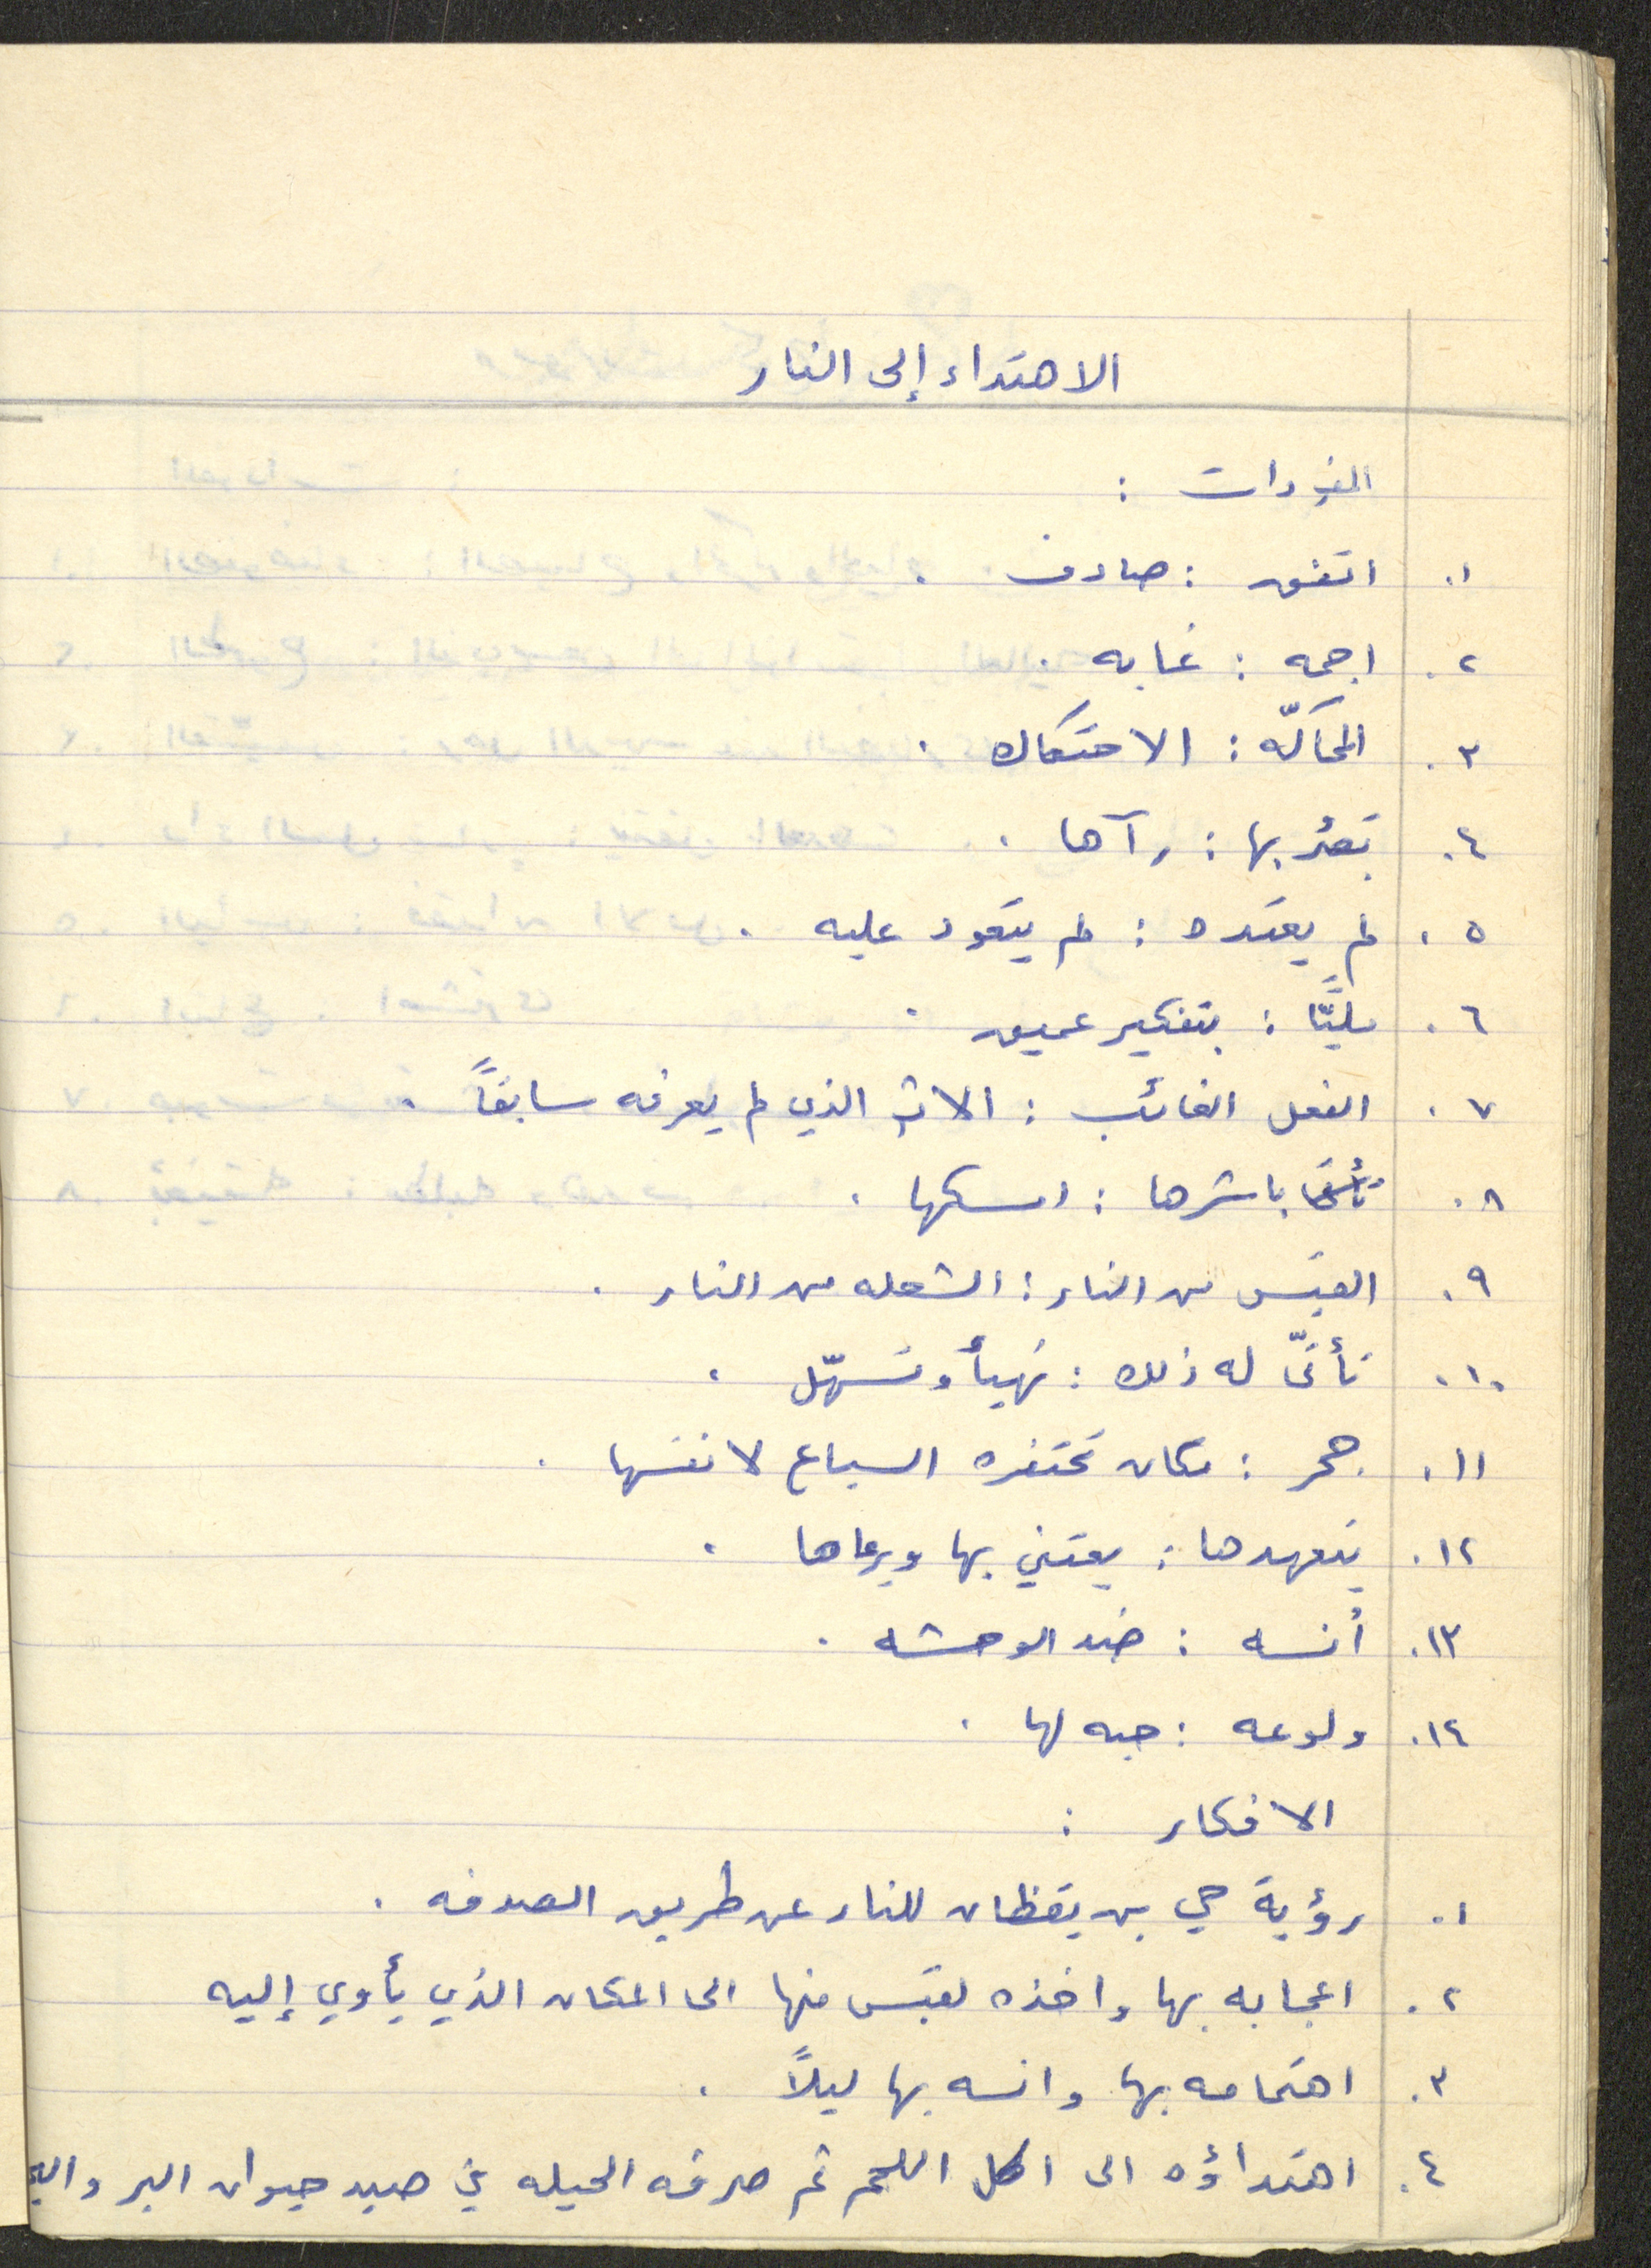 الاهتداء إلى النار
المفردات :
١. اتفق : صادف .
٢. اجمه : غابه .
٣. المحاكّه : الاحتكاك .
٤. بصُر بها : رآها .
٥. لم يعتده : لم يتعود عليه .
٦. مليًّا : بتفكير عميق .
٧. الفعل الغائب : الاثر الذي لم يعرفه سابقاً .
٨. باشرها : امسكها .
٩. القبس من النار : الشعله من النار .
١٠. تأتّى له ذلك : تهيأ وتسهّل .
١١. جحر : مكان تحتفره السباع لانفسها .
١٢. يتعهدها : يعتني بها ويرعاها .
١٣. أنسه : ضد الوحشه .
١٤. ولوعه : حبه لها .
الافكار :
١. رؤية حي بن يقظان للنار عن طريق الصدفه .
٢. اعجابه بها واخذه لقبس منها الى المكان الذي يأوي إليه
٣. اهتمامه بها وانسه بها ليلاً .
٤. اهتداؤه الى اكل اللحم ثم صرفه الحيله في صيد حيوان البر